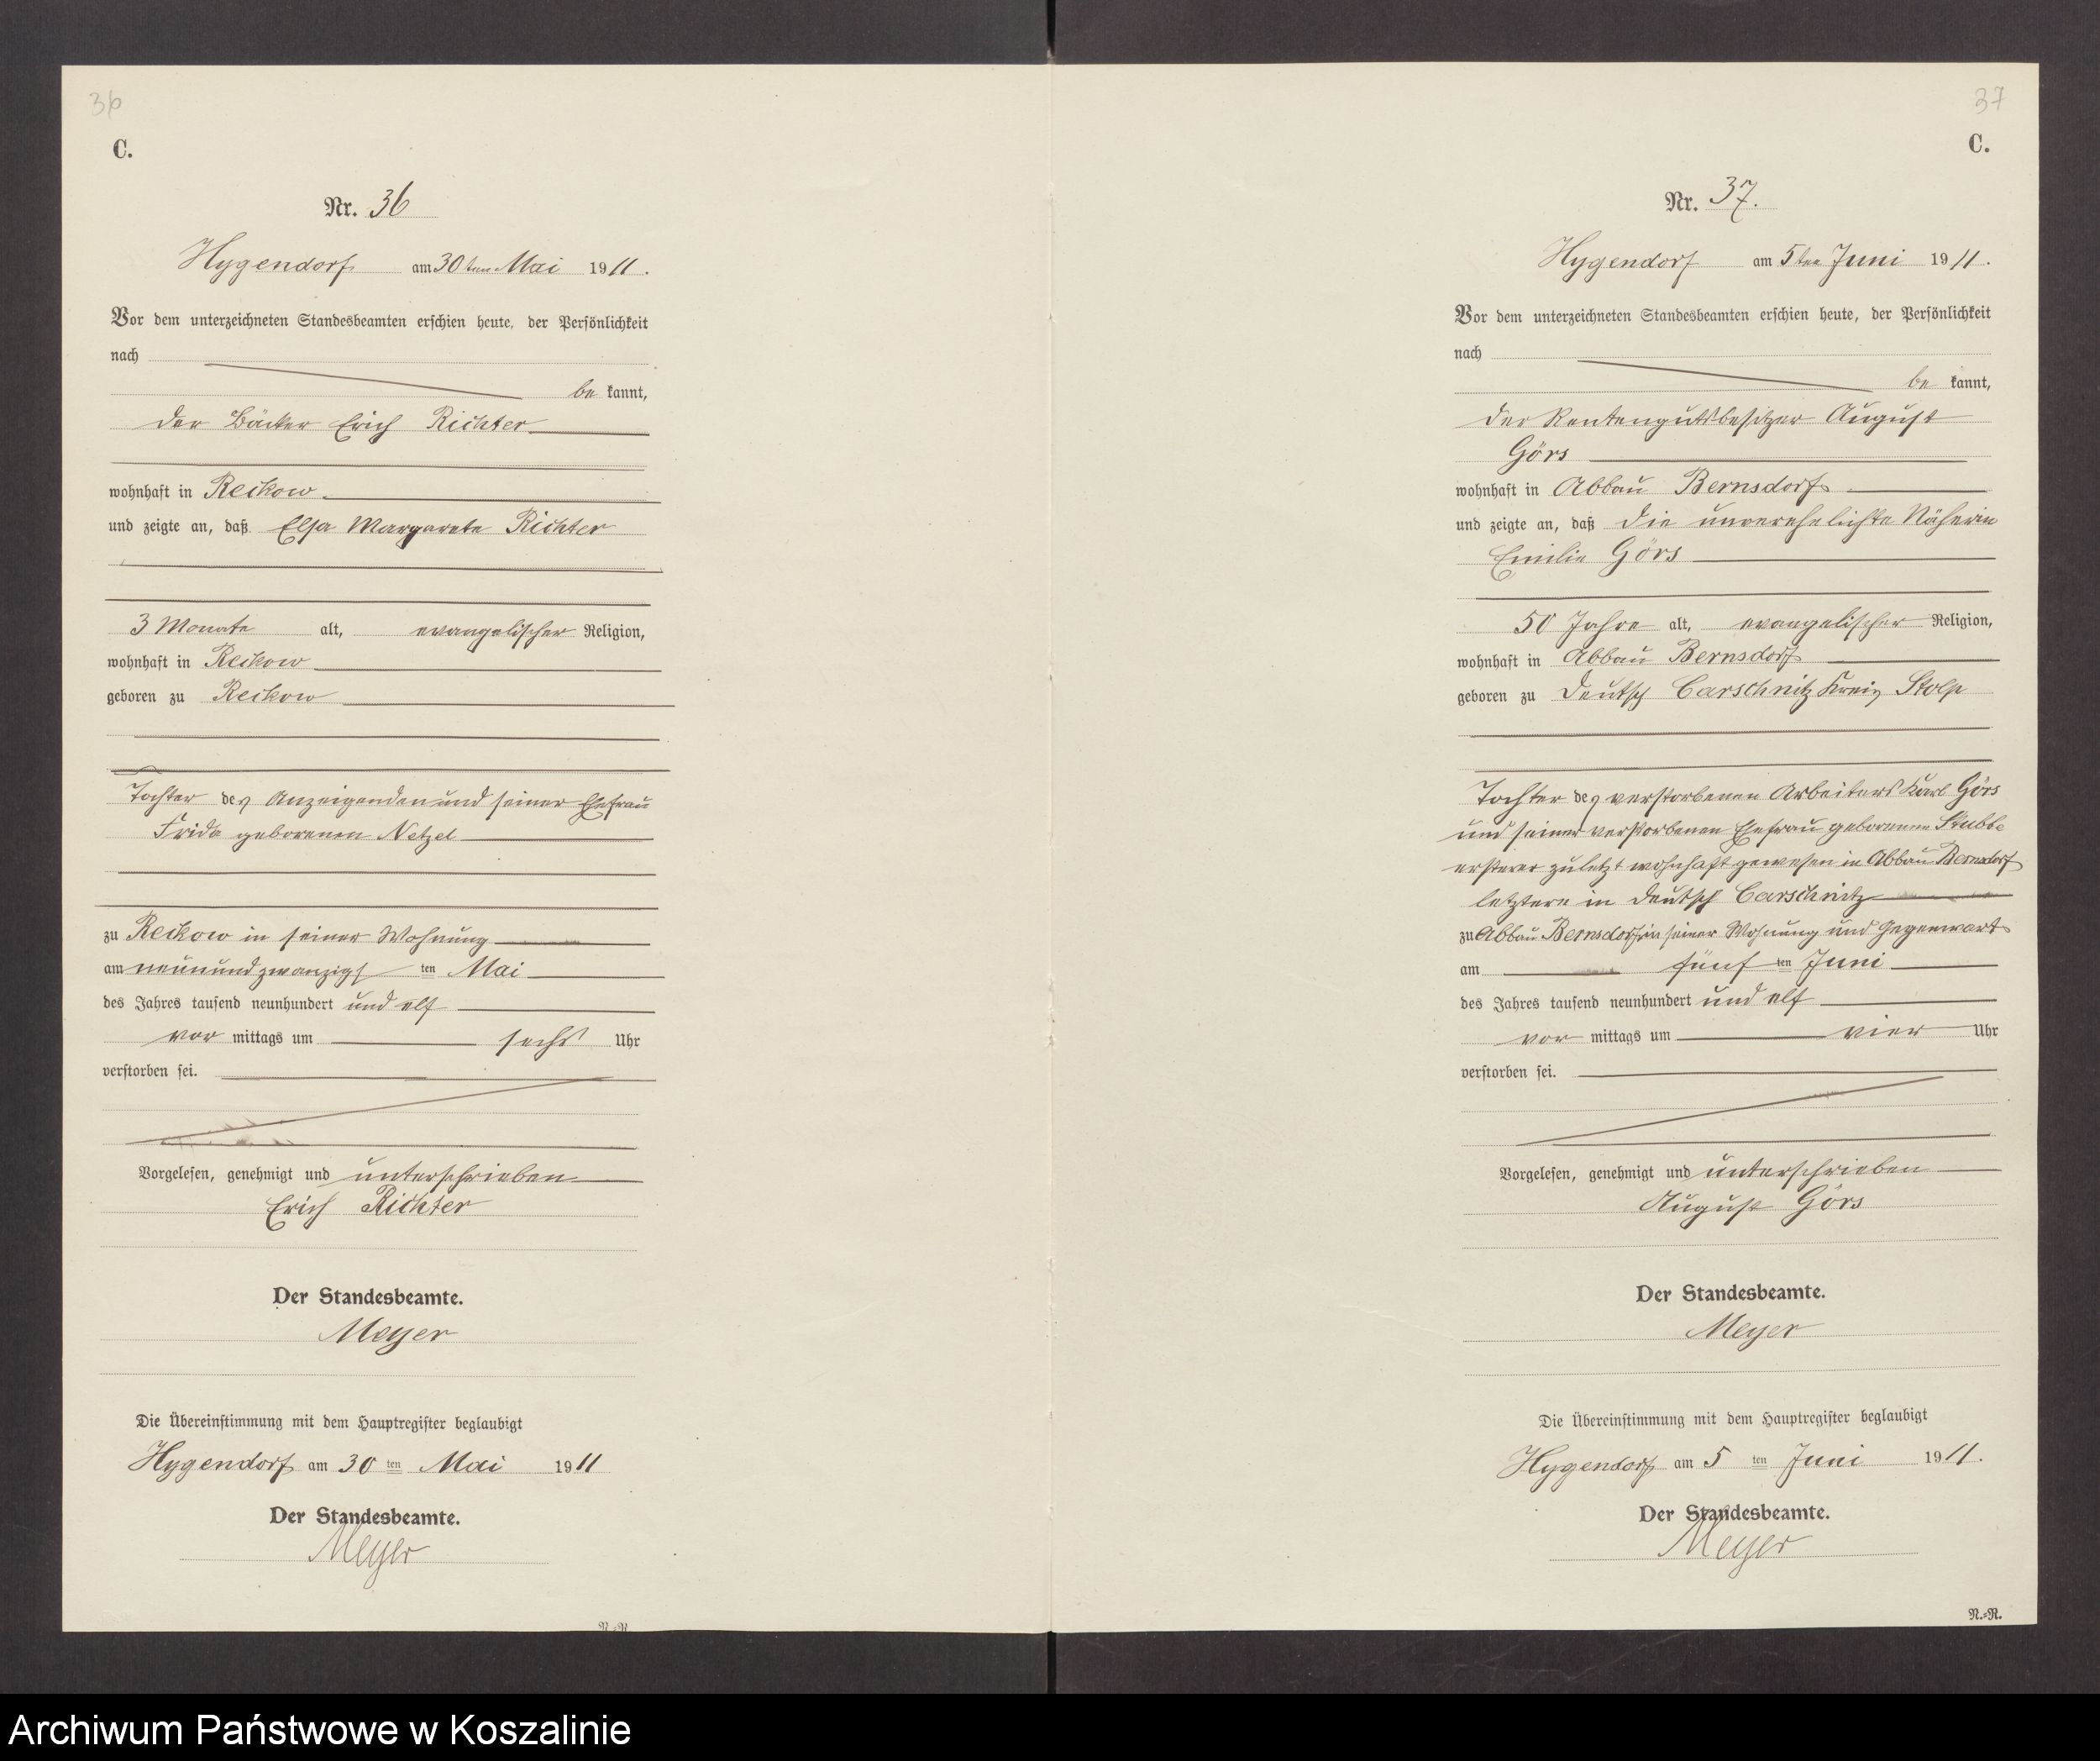 36
C.
Nr. 36
Hygendorf am 30ten Mai 1911.
Vor dem unterzeichneten Standesbeamten erschien heute, der Persönlichkeit
nach
be kannt,
der Bäcker Erich Richter
wohnhaft in Reckow
und zeigte an, daß Elsa Margarete Richter
3 Monate alt, evangelischer Religion,
wohnhaft in Reckow
geboren zu Reckow
Tochter des Anzeigenden und seiner Ehefrau
Frida geborenen Netzel
zu Reckow in seiner Wohnung
am neunundzwanzigs ten Mai
des Jahres tausend neunhundert und elf
vor mittags um sechs Uhr
verstorben sei.
Vorgelesen, genehmigt und unterschrieben
Erich Richter
Der Standesbeamte.
Meyer
Die Übereinstimmung mit dem Hauptregister beglaubigt
Hygendorf am 30 ten Mai 1911
Der Standesbeamte.
Meyer
N.=N.
37
C.
Nr. 37.
Hygendorf am 5ten Juni 1911.
Vor dem unterzeichneten Standesbeamten erschien heute, der Persönlichkeit
nach
be kannt,
der Rentengutsbesitzer August
Görs
wohnhaft in Abbau Bernsdorf
und zeigte an, daß die unverehelichte Näherin
Emilie Görs
50 Jahre alt, evangelischer Religion,
wohnhaft in Abbau Bernsdorf
geboren zu Deutsch Carschnitz Kreis Stolp
Tochter des verstorbenen Arbeiters Karl Görs
und seiner verstorbenen Ehefrau geborenen Stubbe
ersterer zuletzt wohnhaft gewesen in Abbau Bernsdorf
letztere in Deutsch Carschnitz
zu Abbau Bernsdorf in seiner Wohnung und Gegenwart
am fünf ten Juni
des Jahres tausend neunhundert und elf
vor mittags um vier Uhr
verstorben sei.
Vorgelesen, genehmigt und unterschrieben
August Görs
Der Standesbeamte.
Meyer
Die Übereinstimmung mit dem Hauptregister beglaubigt
Hygendorf am 5 ten Juni 1911.
Der Standesbeamte.
Meyer
N.=N.
Archiwum Państwowe w Koszalinie